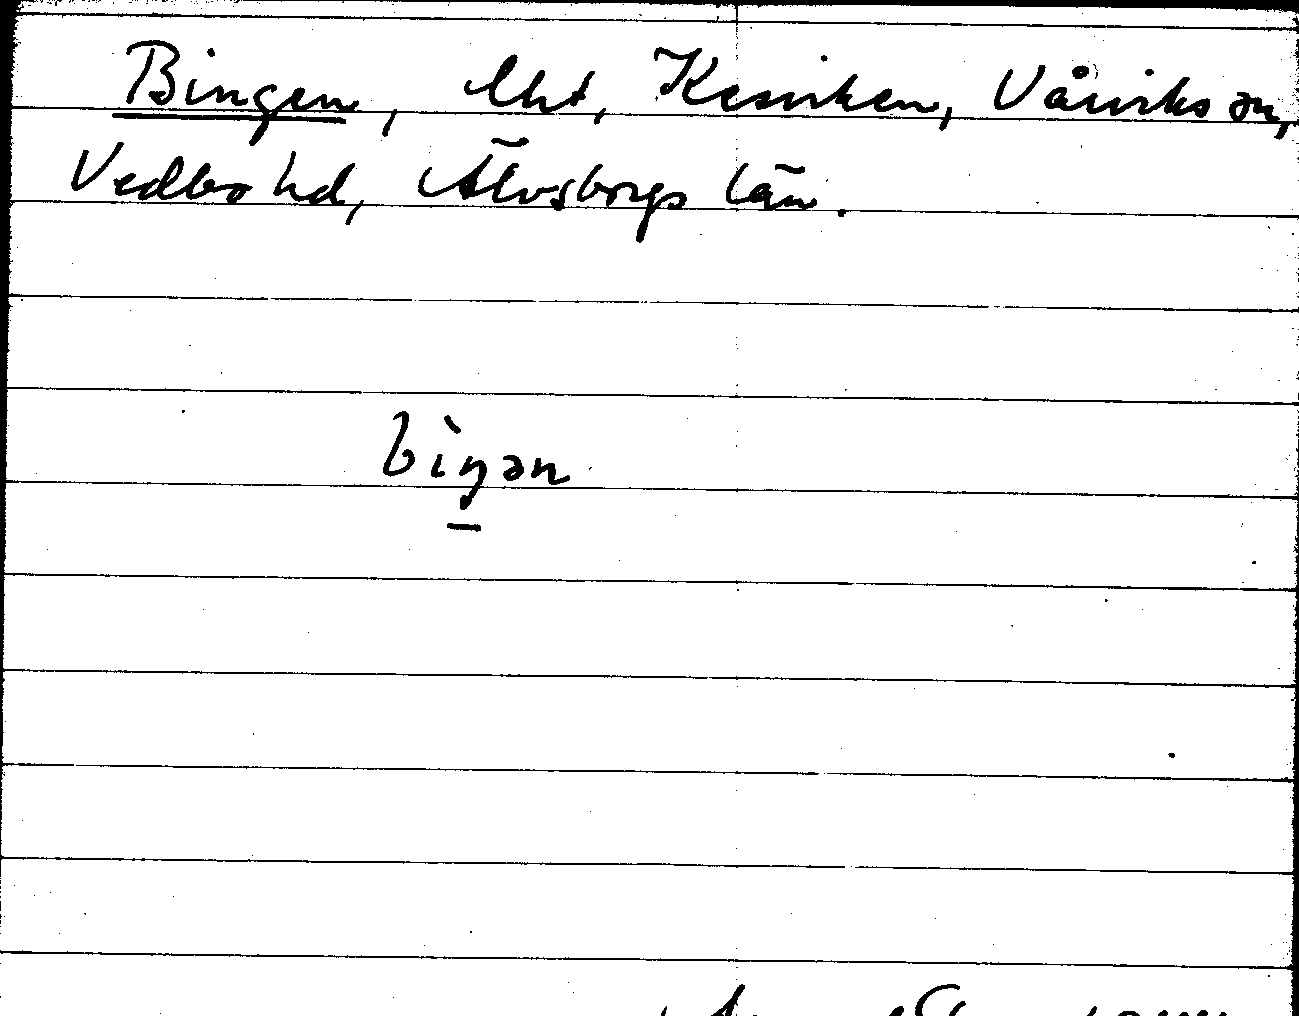 Bingen, lht, Kesviken, Vårviks sn,
Vedbo hd, Älvsborgs län.
bìŋən